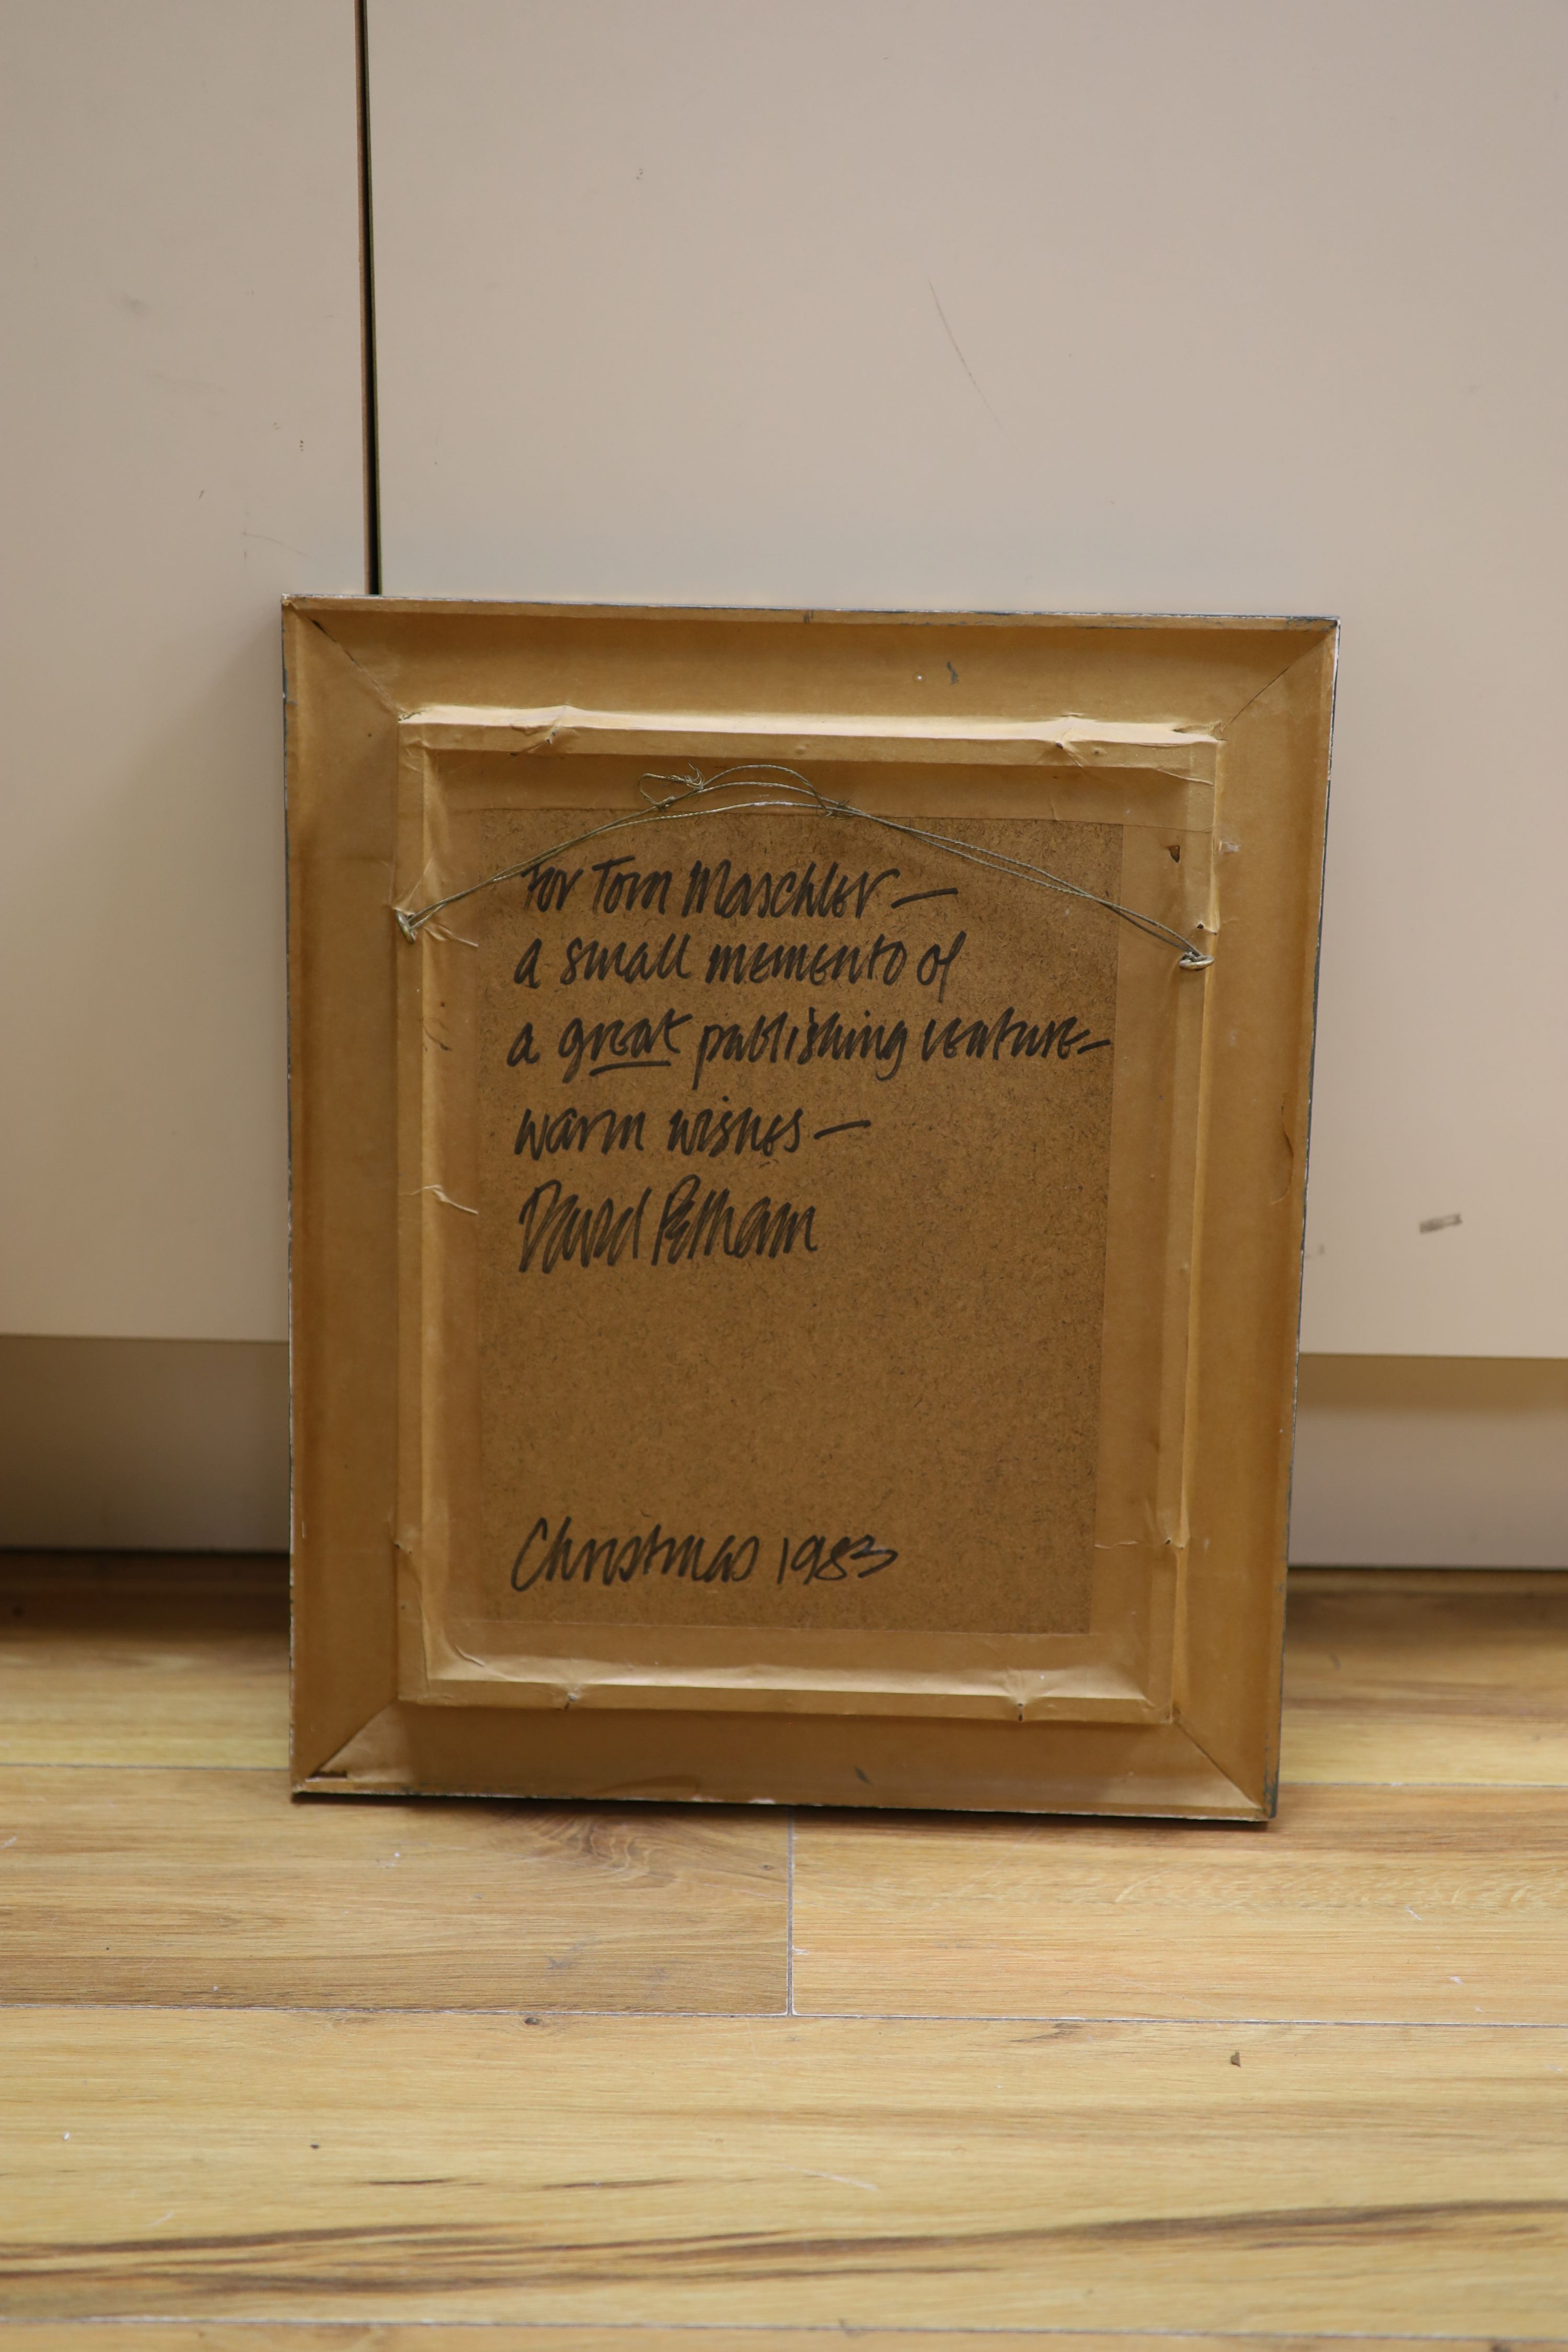 For Tom Maschler —
a small memento of
a great publishing venture –
warm wishes —
David Pelham
Christmas 1983